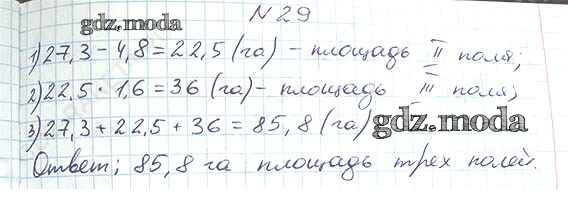 N29
gdz.moda
1) 27,3 - 4,8 = 22,5 (га) - площадь II поля;
2) 22,5 · 1,6 = 36 (га) - площадь III поля;
3) 27,3 + 22,5 + 36 = 85,8 (га) gdz.moda
Ответ; 85,8 га площадь трех полей.